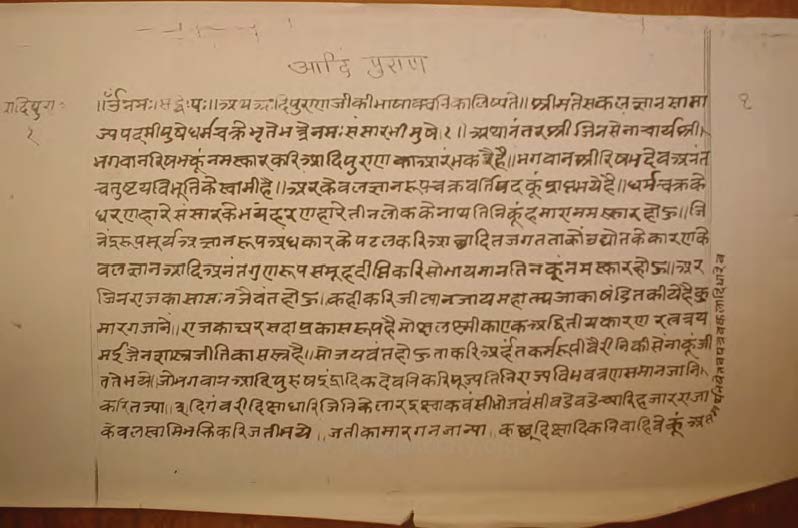 आदि पुराण
आदिपुरा०
१
१
॥ॐनमः॥सिद्धेभ्यः॥अथआदिपुराणजीकीभाषावचनिकालिष्यते॥श्रीमतेसकलज्ञानसामा
ज्यपदमीयुषेधर्मचक्रभृतेभर्त्रेनमःसंसारभीमुषे॥१॥अथानंतरश्रीजिनसेनाचार्यश्री
भगवानरिषभकूंनमस्कारकरिआदिपुराणकाप्रारंभकरैहै॥भगवानश्रीरिषभदेवअनंत
चतुष्टयविभूतिकेस्वामीहै॥अरकेवलज्ञानरूपचक्रवर्तिपदकूंप्राप्तभयेहै॥धर्मचक्रके
धरणहारेसंसारकेभयहरणहारेतीनलोककेनाथतिनिकूंहमारानमस्कारहोऊ॥जि
नेंद्ररूपसूर्यअज्ञानरूपअंधकारकेपटलकरिआछादितजगतताकोंउद्योतकेकारणके
वलज्ञानआदिअनंतगुणरूपसमूहदीप्तिकरिसोभायमानतिनकूंनमस्कारहोऊ॥अर
जिनराजकासासनजैवंतहोऊ॥
मारगजाने॥ सदाप्रकासरूपहैमोक्षलक्ष्मीकाएकअद्वितीयकारणरत्नत्रय
मईजैन सोजयवंतहोऊताकरिअर्हतकर्मरूपीवैरीनिकीसेनाकूंजी
ततेभये॥जोभगवानआदिपुरुषइंद्रादिकदेवनिकरिपूज्यतिनिराज्यविभवत्रणसमानजानि
करितज्या॥ दिगंवरीदिक्षाधारिजिनिकेलारइक्ष्वाकवंसीभोजवंसीवडेवडेच्यारिहजारराजा
केवलस्वामिभक्तिकरिजतीभये॥जतीकामारगनजान्या॥